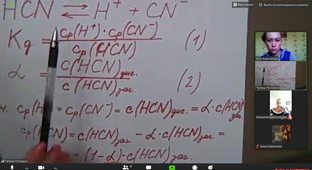 HCN ⇄ H⁺ + CN⁻
K_q = cp(H⁺)·cp(CN⁻) / cp(HCN) (1)
α = c(HCN)дис. / c(HCN)заг. (2)
cp(H⁺) = cp(CN⁻) = c(HCN)дис. = α·c(HCN)заг.
cp(HCN) = c(HCN)заг. − α·c(HCN)заг. =
= (1−α)·c(HCN)заг.